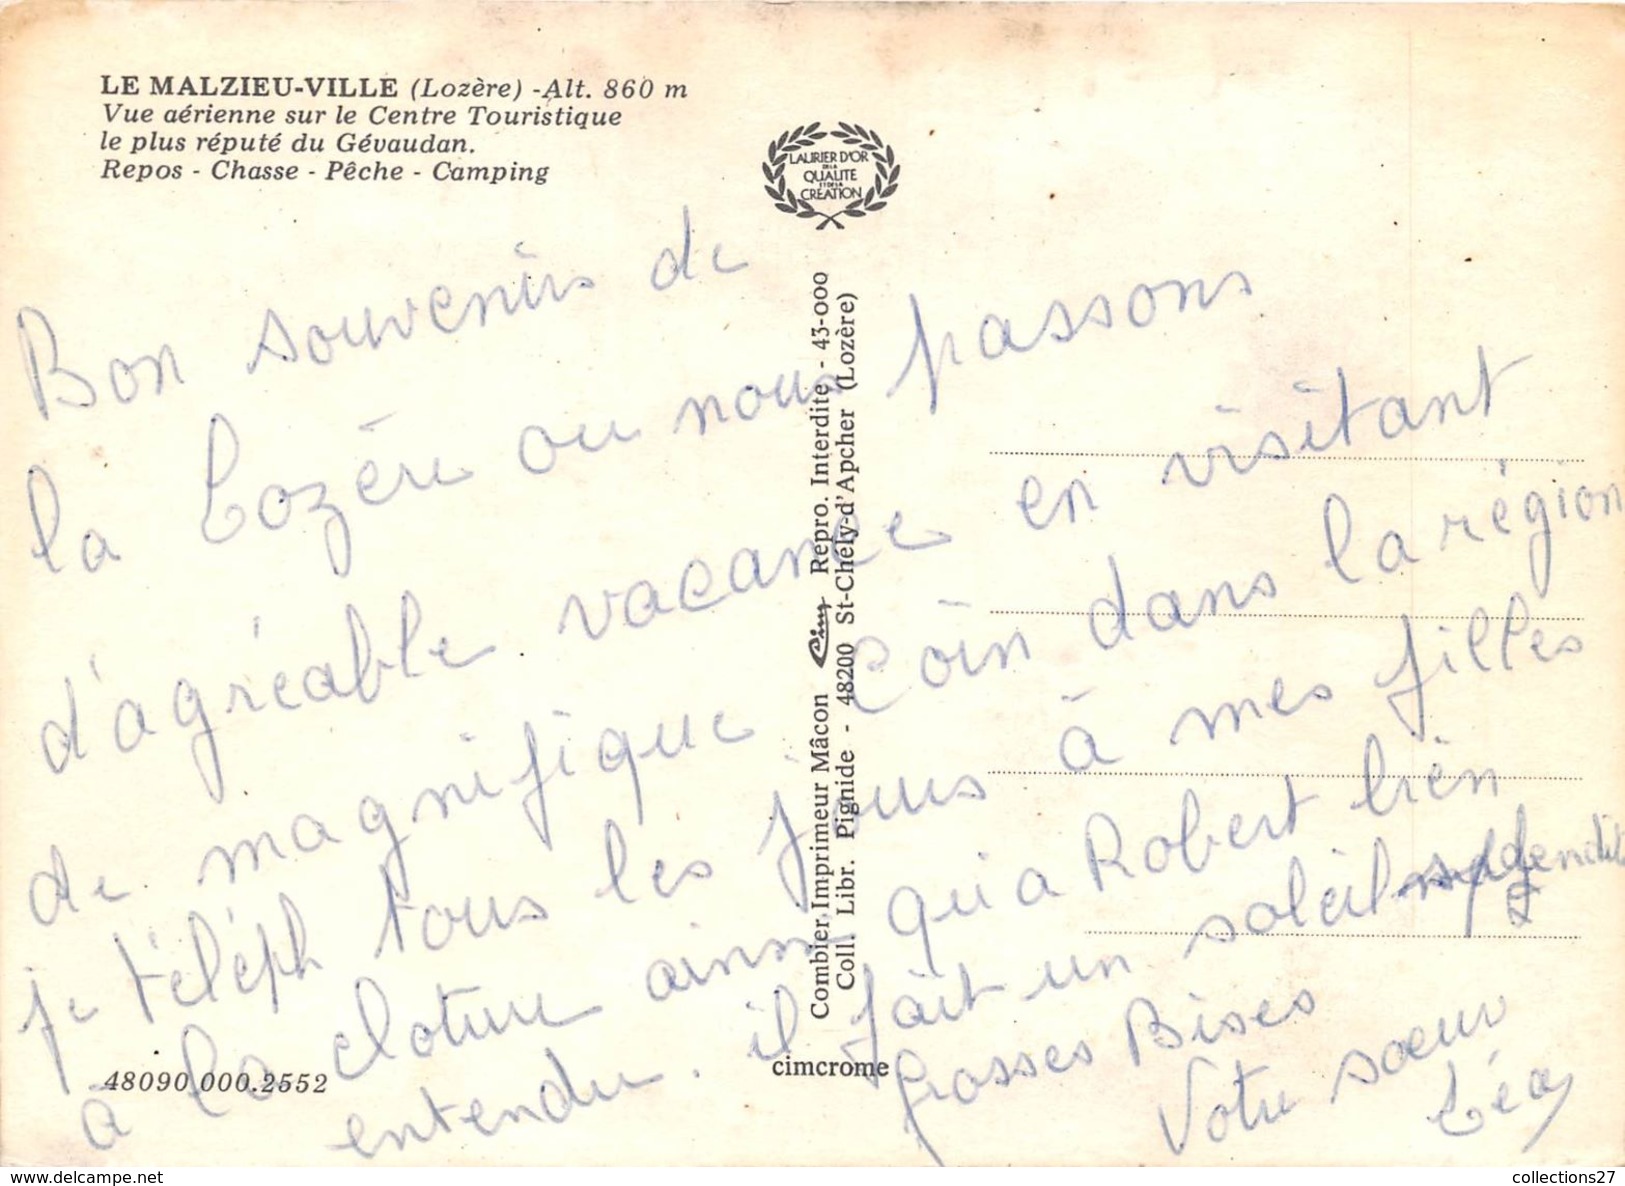 LE MALZIEU-VILLE (Lozère) - Alt. 860 m
Vue aérienne sur le Centre Touristique
le plus réputé du Gévaudan.
Repos - Chasse - Pêche - Camping
LAURIER D'OR
DE LA
QUALITE
ET DE LA
CRÉATION
Bon souvenirs de
la Lozère ou nous passons
d'agréable vacance en visitant
de magnifique coin dans la région
je téléph tous les jours à mes filles
à la cloture ainsi qu'a Robert bien
entendu. il fait un soleil splendide
Grosses Bises
Votre sœur
Léa
Combier Imprimeur Mâcon Cim Repro. Interdite - 43-000
Coll. Libr. Pignide - 48200 St-Chély-d'Apcher (Lozère)
48090.000.2552
cimcrome
collections27